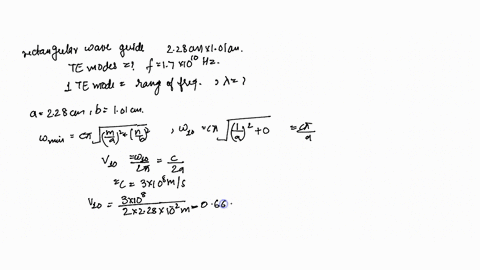 rectangular wave guide 2.28cm×1.01cm.
TE modes=? f=1.7×10^10 Hz.
1 TE mode = rang of freq. , λ=?
a=2.28cm, b=1.01cm.
ωmin = cπ√((m/a)²+(n/b)²) , ω10 = cπ√((1/a)²+0) = cπ/a
V10 = ω10/2π = c/2a
=C = 3×10^8 m/s
V10 = 3×10^8 / 2×2.28×10^-2 m = 0.66.